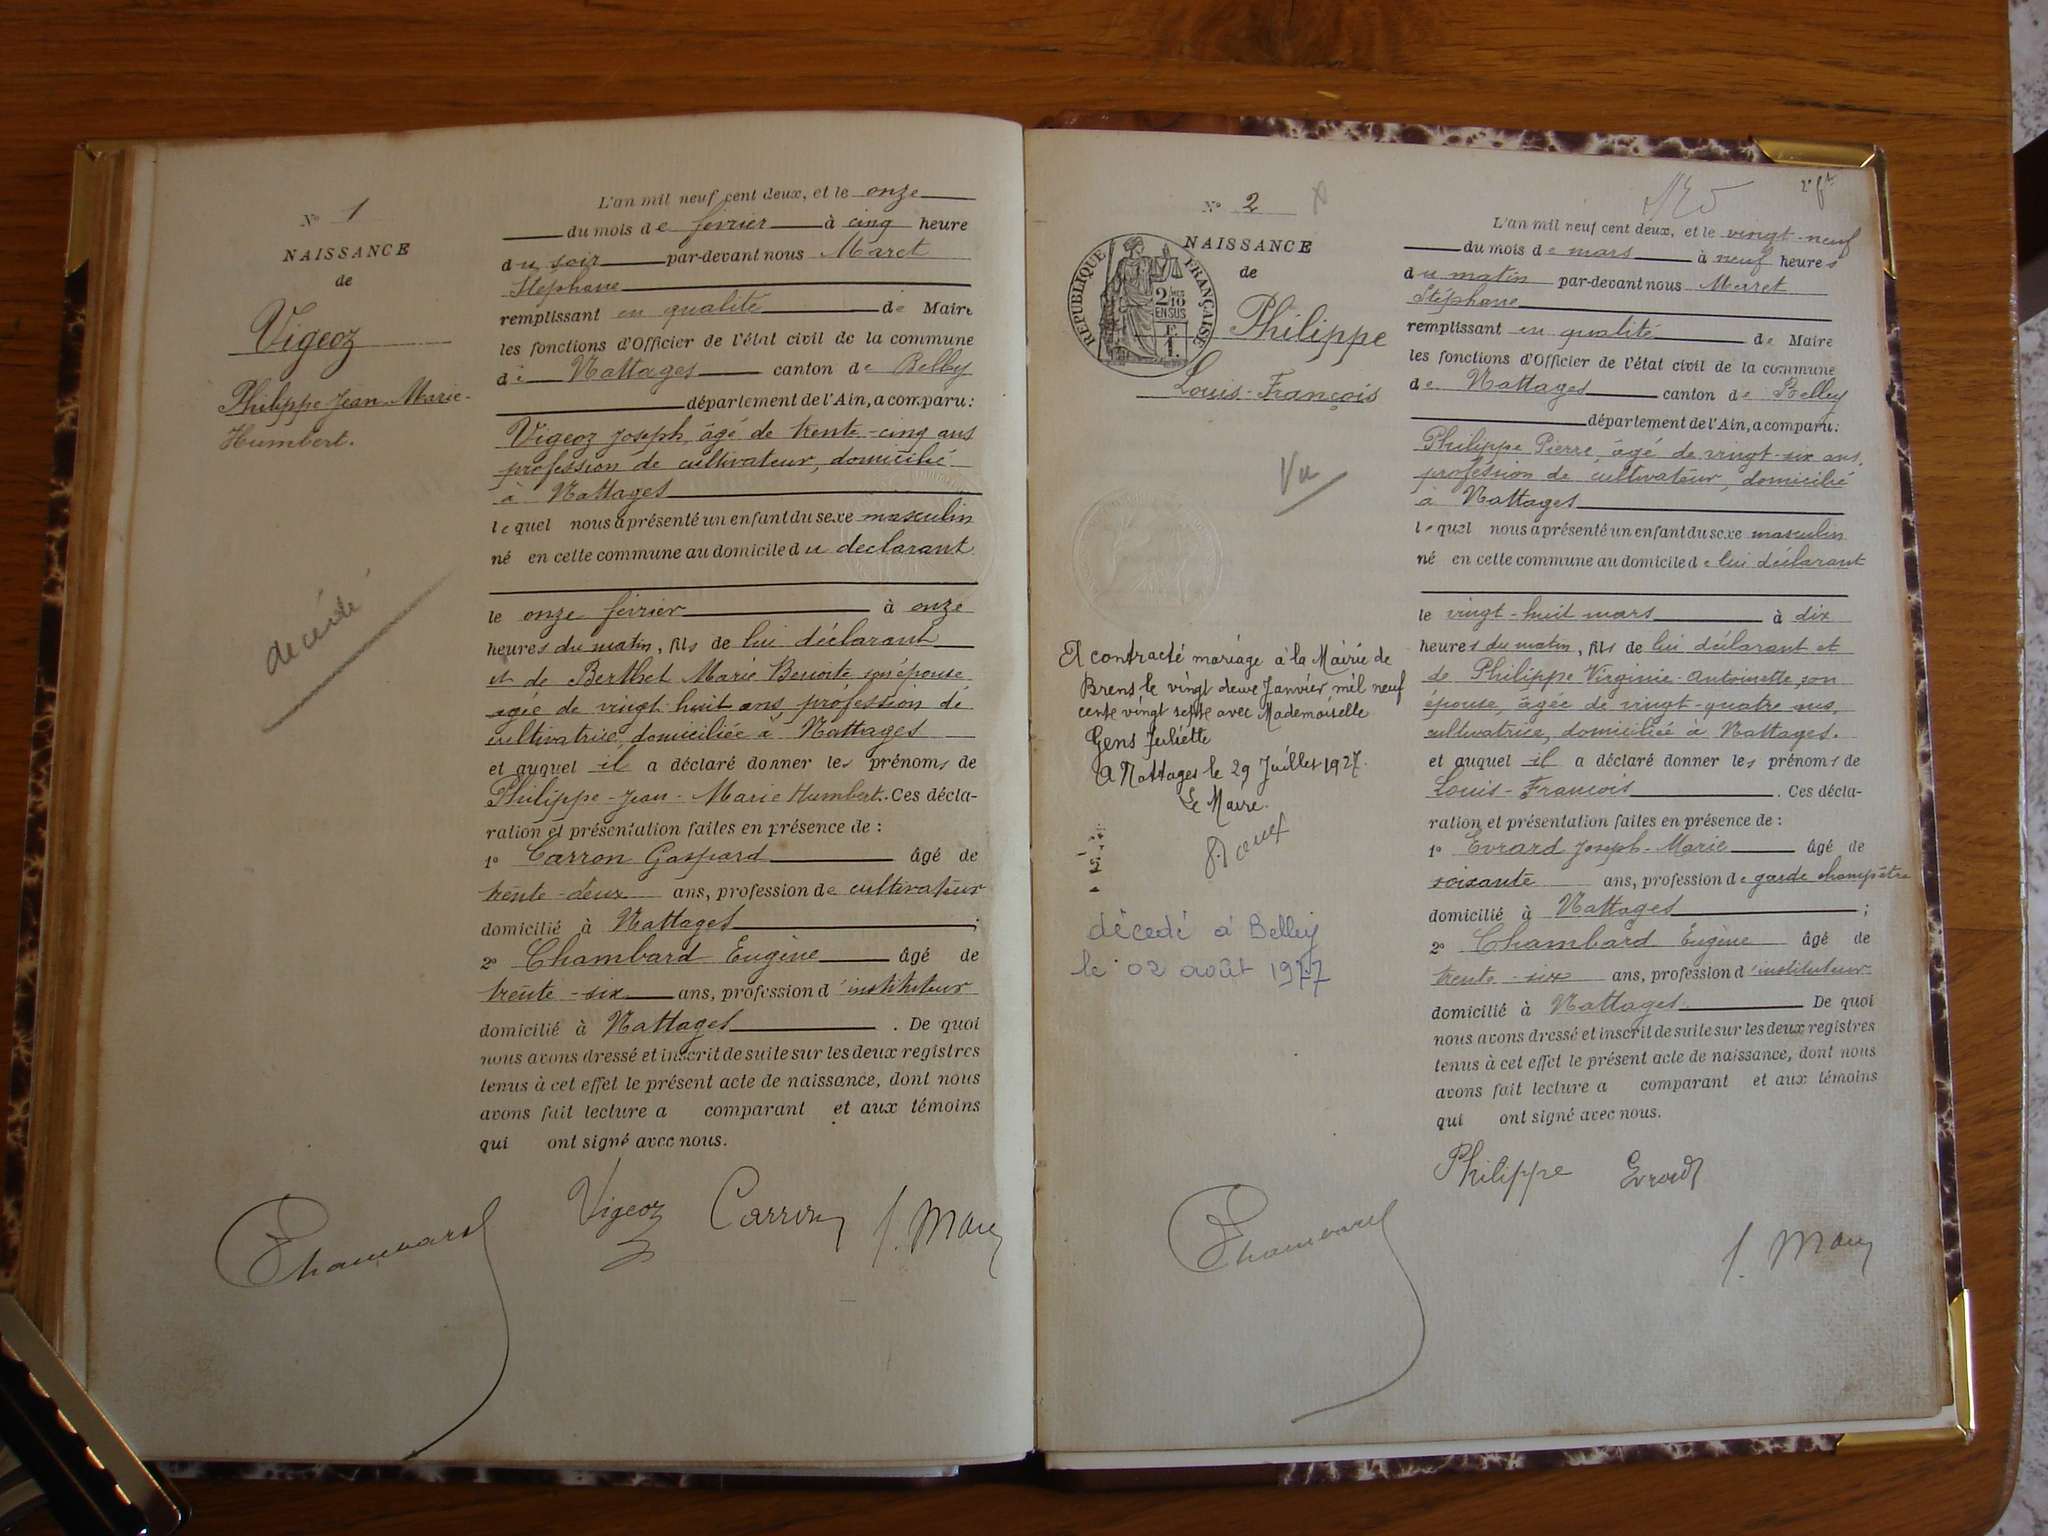 N° 1
NAISSANCE
de
Vigeoz
Philippe Jean Marie-
Humbert.
decédé
L'an mil neuf cent deux, et le onze
du mois de février à cinq heure
du soir par-devant nous Maret
Stéphane
remplissant en qualité de Maire
les fonctions d'Officier de l'état civil de la commune
de Nattages canton de Belley
département de l'Ain, a comparu:
Vigeoz Joseph, âgé de trente-cinq ans
profession de cultivateur, domicilié
à Nattages
lequel nous a présenté un enfant du sexe masculin
né en cette commune au domicile du declarant
le onze février à onze
heures du matin, fils de lui déclarant
et de Berthet Marie Benoite son épouse
agée de vingt-huit ans profession de
cultivatrice, domiciliée à Nattages
et auquel il a déclaré donner les prénoms de
Philippe-Jean-Marie Humbert. Ces décla-
ration et présentation faites en présence de :
1° Carron Gaspard âgé de
trente-deux ans, profession de cultivateur
domicilié à Nattages ;
2° Chambard Eugène âgé de
trente-six ans, profession d'instituteur
domicilié à Nattages . De quoi
nous avons dressé et inscrit de suite sur les deux registres
tenus à cet effet le présent acte de naissance, dont nous
avons fait lecture a comparant et aux témoins
qui ont signé avec nous.
Chambard Vigeoz Carron S. Maret
N° 2
NAISSANCE
de
RÉPUBLIQUE FRANÇAISE
2/10 EN SUS
Philippe
Louis-François
Vu
A contracté mariage à la Mairie de
Brens le vingt deux Janvier mil neuf
cent vingt sept avec Mademoiselle
Gens Juliette
A Nattages le 29 Juillet 1927.
Le Maire.
décedé à Belley
le 02 août 1977
L'an mil neuf cent deux, et le vingt-neuf
du mois de mars à neuf heures
du matin par-devant nous Maret
Stéphane
remplissant en qualité de Maire
les fonctions d'Officier de l'état civil de la commune
de Nattages canton de Belley
département de l'Ain, a comparu:
Philippe Pierre, âgé de vingt-six ans,
profession de cultivateur, domicilié
à Nattages
lequel nous a présenté un enfant du sexe masculin
né en cette commune au domicile de lui déclarant
le vingt-huit mars à dix
heures du matin, fils de lui déclarant et
de Philippe Virginie-Antoinette, son
épouse, âgée de vingt-quatre ans,
cultivatrice, domiciliée à Nattages.
et auquel il a déclaré donner les prénoms de
Louis-François . Ces décla-
ration et présentation faites en présence de :
1° Evrard Joseph-Marie âgé de
soixante ans, profession de garde champêtre
domicilié à Nattages ;
2° Chambard Eugène âgé de
trente-six ans, profession d'instituteur
domicilié à Nattages De quoi
nous avons dressé et inscrit de suite sur les deux registres
tenus à cet effet le présent acte de naissance, dont nous
avons fait lecture a comparant et aux témoins
qui ont signé avec nous.
Philippe Evrard
Chambard S. Maret